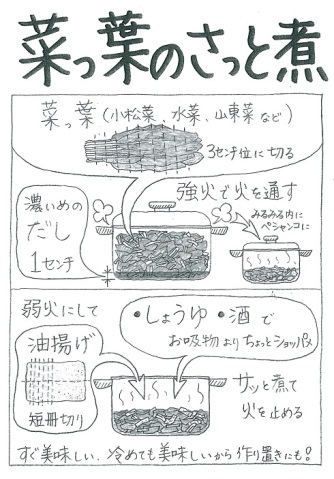 菜っ葉のさっと煮
菜っ葉(小松菜、水菜、山東菜など)
3センチ位に切る
強火で火を通す
濃いめの
だし
1センチ
みるみる内に
ペシャンコに
弱火にして
油揚げ
短冊切り
・しょうゆ・酒で
お吸物よりちょっとショッパメ
サッと煮て
火を止める
すぐ美味しい、冷めても美味しいから作り置きにも!